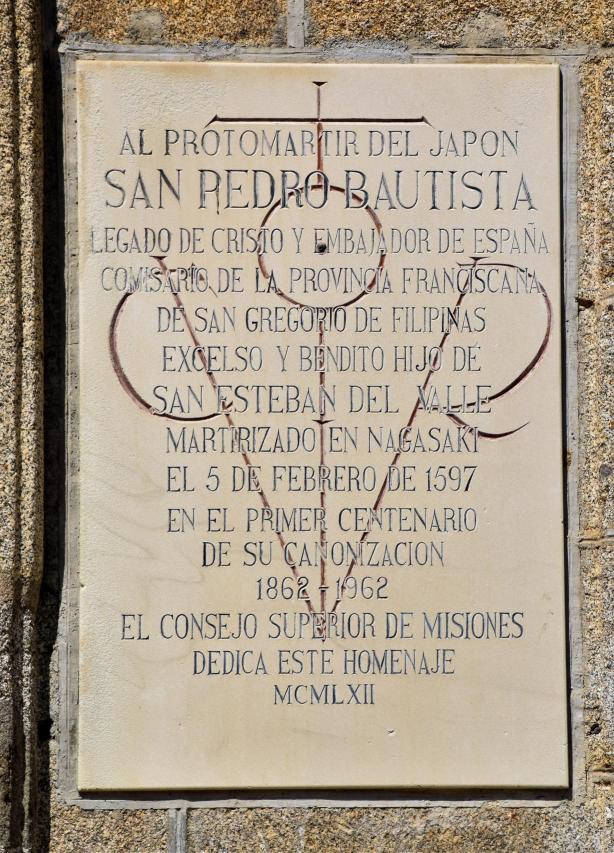 AL PROTOMARTIR DEL JAPON
SAN PEDRO BAUTISTA
LEGADO DE CRISTO Y EMBAJADOR DE ESPAÑA
COMISARIO DE LA PROVINCIA FRANCISCANA
DE SAN GREGORIO DE FILIPINAS
EXCELSO Y BENDITO HIJO DE
SAN ESTEBAN DEL VALLE
MARTIRIZADO EN NAGASAKI
EL 5 DE FEBRERO DE 1597
EN EL PRIMER CENTENARIO
DE SU CANONIZACION
1862-1962
EL CONSEJO SUPERIOR DE MISIONES
DEDICA ESTE HOMENAJE
MCMLXII